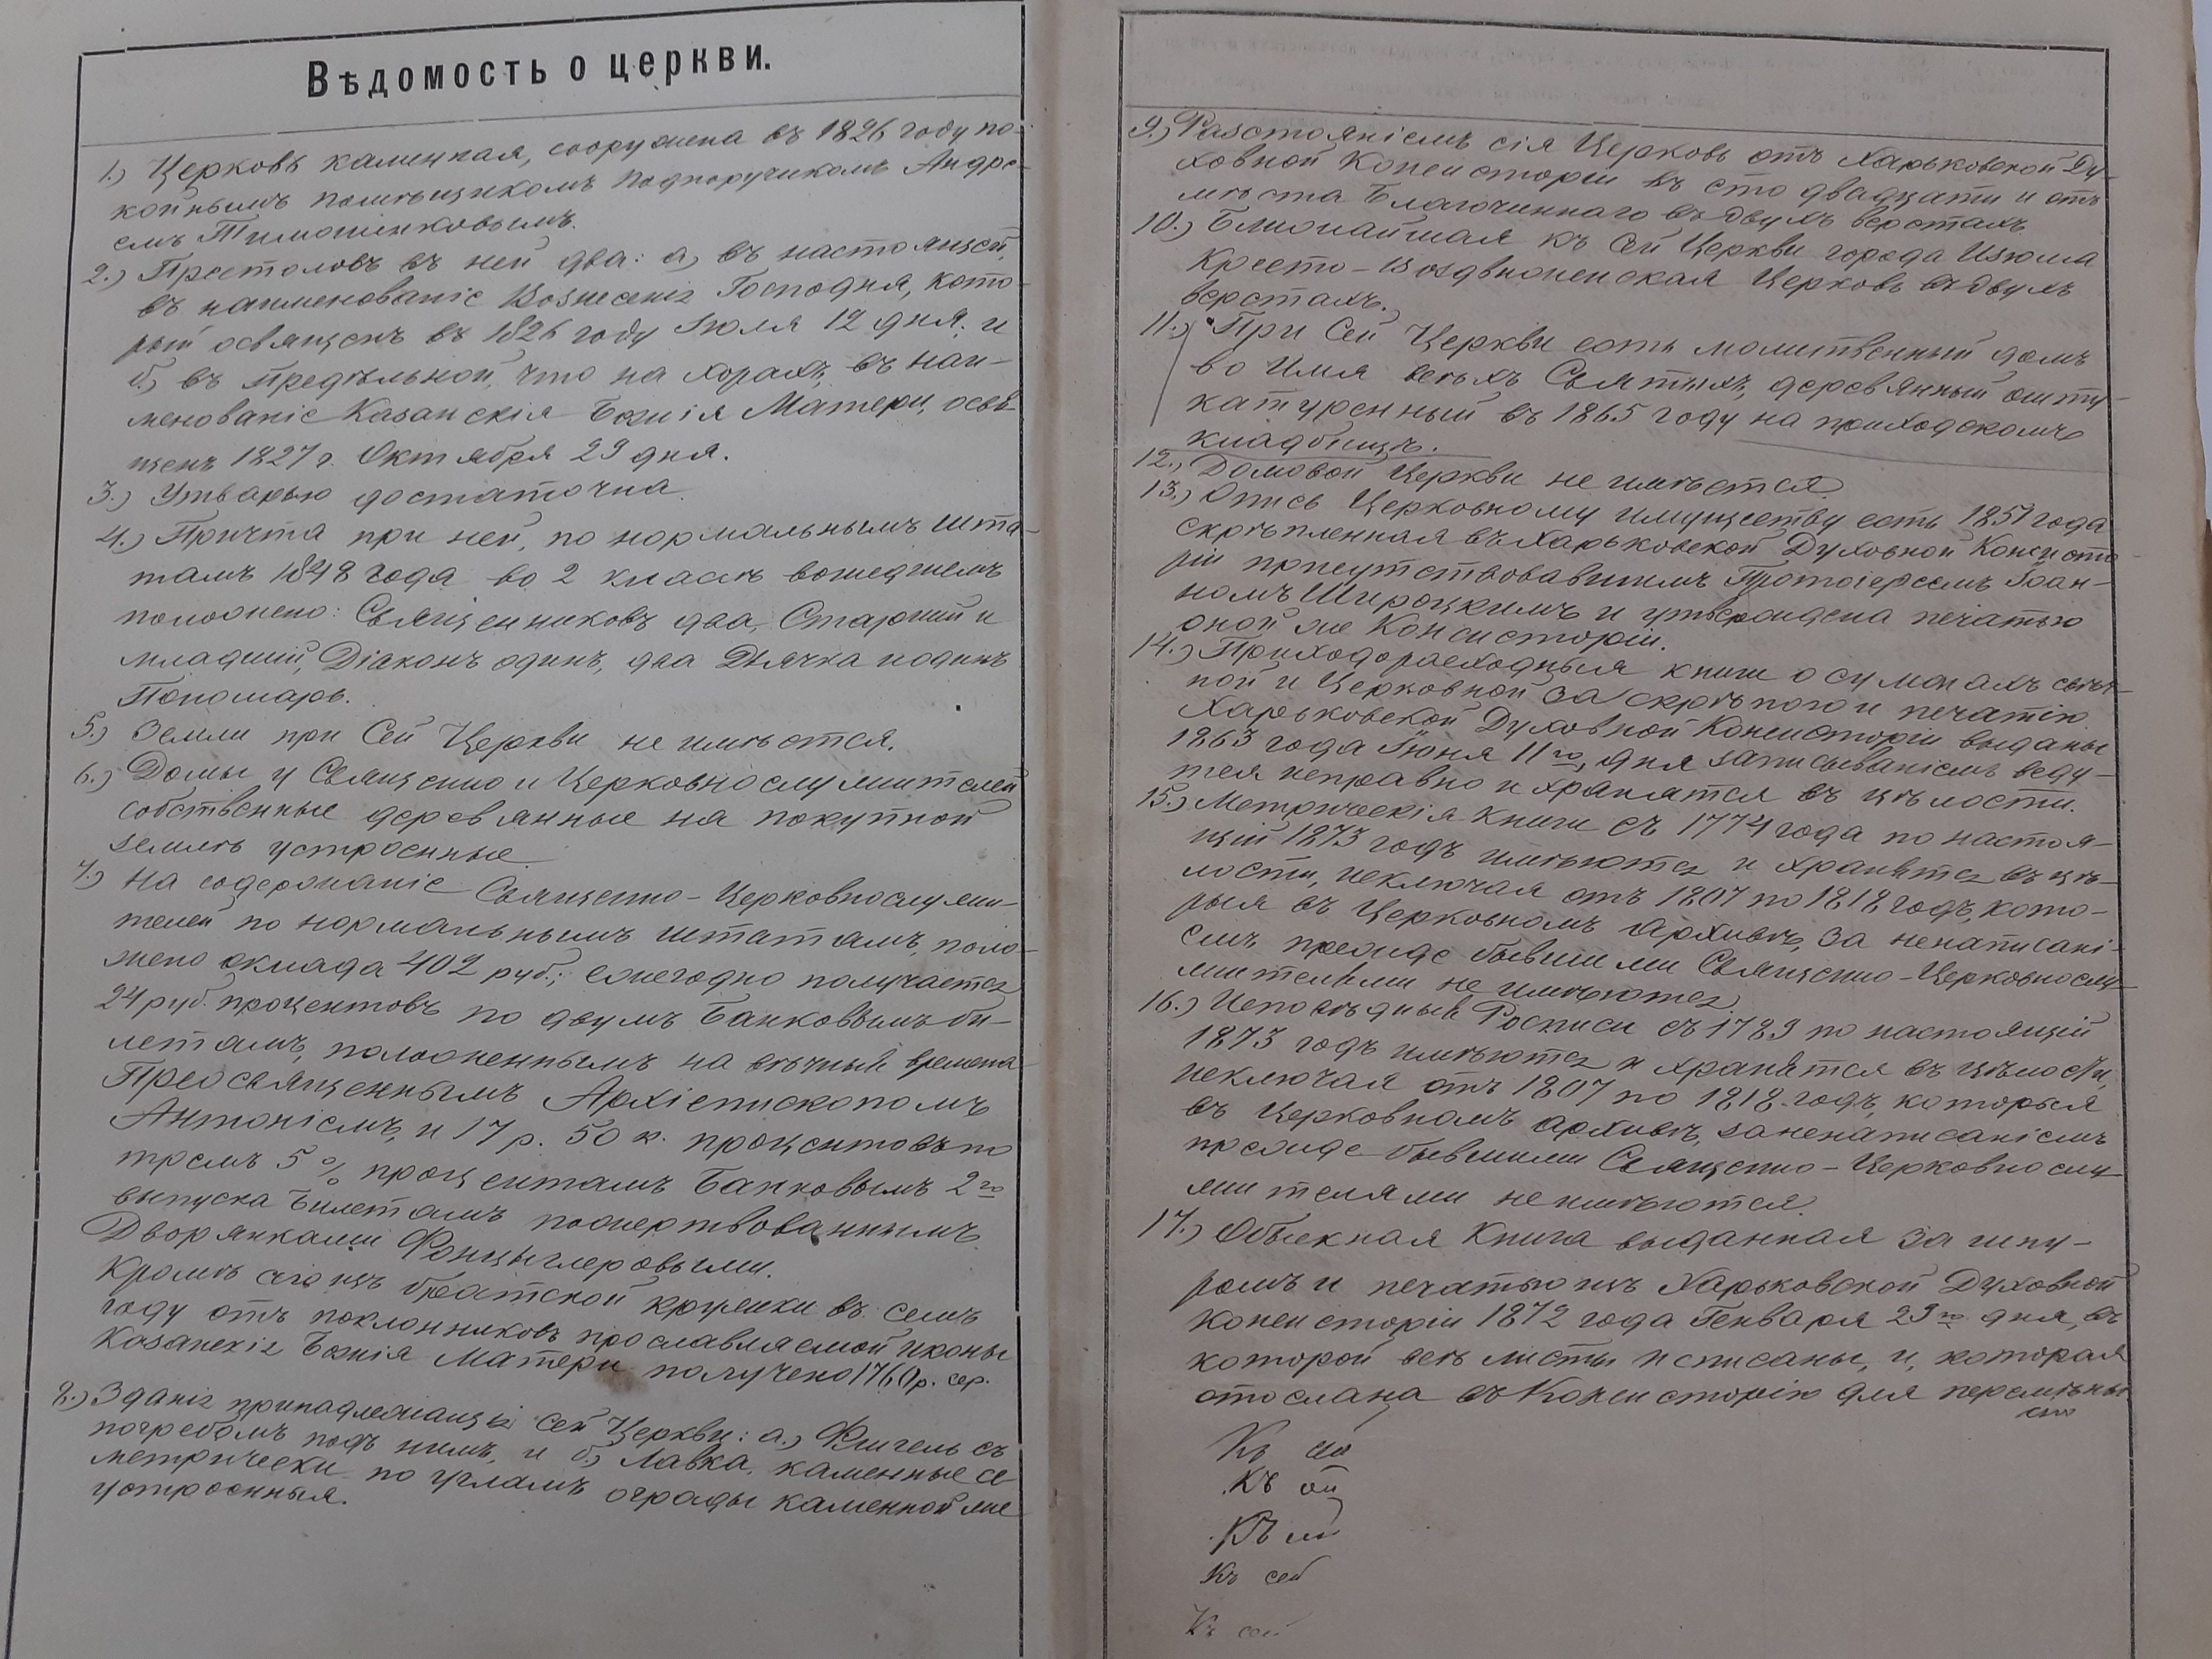 Вѣдомость о церкви.
1.) Церковь каменная, сооружена въ 1826 году по-
койнымъ помѣщикомъ Подпоручикомъ Андре-
емъ Тимошенковымъ.
2.) Престоловъ въ ней два: а, въ настоящей,
въ наименованіе Вознесенія Господня, кото-
рый освященъ въ 1826 году Іюля 12 дня; и
б, въ предѣльной, что на хорахъ, въ наи-
менованіе Казанскія Божія Матери, освя-
щенъ 1827 г. Октября 29 дня.
3.) Утварью достаточна.
4.) Причта при ней, по нормальнымъ шта-
тамъ 1848 года во 2 классѣ вошедшемъ
положено: Священниковъ два, Старшій и
младшій, Діаконъ одинъ, два Дьячка и одинъ
Пономарь.
5.) Земли при Сей Церкви не имѣется.
6.) Домы у Священно и Церковнослужителей
собственные деревянные на покупной
землѣ устроенные.
7.) На содержаніе Священно-Церковнослужи-
телей по нормальнымъ штатамъ, поло-
жено оклада 402 руб.; ежегодно получается
24 руб. процентовъ по двумъ Банковымъ би-
летамъ, положеннымъ на вѣчныя времена
Преосвященнымъ Архіепископомъ
Антоніемъ, и 17 р. 50 к. процентовъ по
тремъ 5% процентамъ Банковымъ 2го
выпуска билетамъ пожертвованнымъ
Дворянками Фонцыглеровыми.
Кромѣ сего изъ братской кружки въ семъ
году отъ поклонниковъ прославляемой иконы
Казанскія Божія Матери получено 1760 р. сер.
8.) Зданія принадлежащія сей Церкви: а.) Флигель съ
погребомъ подъ нимъ, и б, Лавка, каменные си-
метрически по угламъ ограды каменной же
устроенныя.
9.) Разстояніемъ сія Церковь отъ Харьковской Ду-
ховной Консисторіи въ сто двадцати и отъ
мѣста Благочиннаго въ двухъ верстахъ.
10.) Ближайшая къ Сей Церкви города Изюма
Кресто-Воздвиженская Церковь въ двухъ
верстахъ.
11.) При Сей Церкви есть молитвенный домъ
во Имя всѣхъ Святыхъ, деревянный ошту-
катуренный въ 1865 году на приходскомъ
кладбищѣ.
12.) Домовой Церкви не имѣется.
13.) Опись Церковному имуществу есть 1851 года
скрѣпленная въ Харьковской Духовной Консисто-
ріи присутствовавшимъ Протоіереемъ Іоан-
номъ Широцкимъ и утверждена печатью
оной же Консисторіи.
14.) Приходорасходныя книги о суммахъ свѣч-
ной и Церковной за скрѣпою и печатію
Харьковской Духовной Консисторіи выданы
1863 года Іюня 11го, дня записываніемъ веду-
тся исправно и хранятся въ цѣлости.
15.) Метрическія Книги съ 1774 года по настоя-
щій 1873 годъ имѣются и хранятся въ цѣ-
лости, исключая отъ 1807 по 1818 годъ, кото-
рыя въ Церковномъ Архивѣ, за ненаписані-
емъ прежде бывшими Священно-Церковнослу-
жителями не имѣются.
16.) Исповѣдныя Росписи съ 1789 по настоящій
1873 годъ имѣются и хранятся въ цѣлости,
исключая отъ 1807 по 1818 годъ, которыя
въ Церковномъ архивѣ, за ненаписаніемъ
прежде бывшими Священно-Церковнослу-
жителями не имѣются.
17.) Обыскная Книга выданная за шну-
ромъ и печатью изъ Харьковской Духовной
Консисторіи 1872 года Генваря 29го дня, въ
которой всѣ листы исписаны, и, которая
отослана въ Консисторію для перемѣны
Къ
Къ
Къ
Къ сей
Къ сей